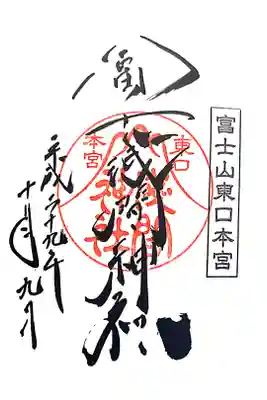 富士山東口本宮
冨士浅間神社
東口
本宮
平成二十九年
十月九日